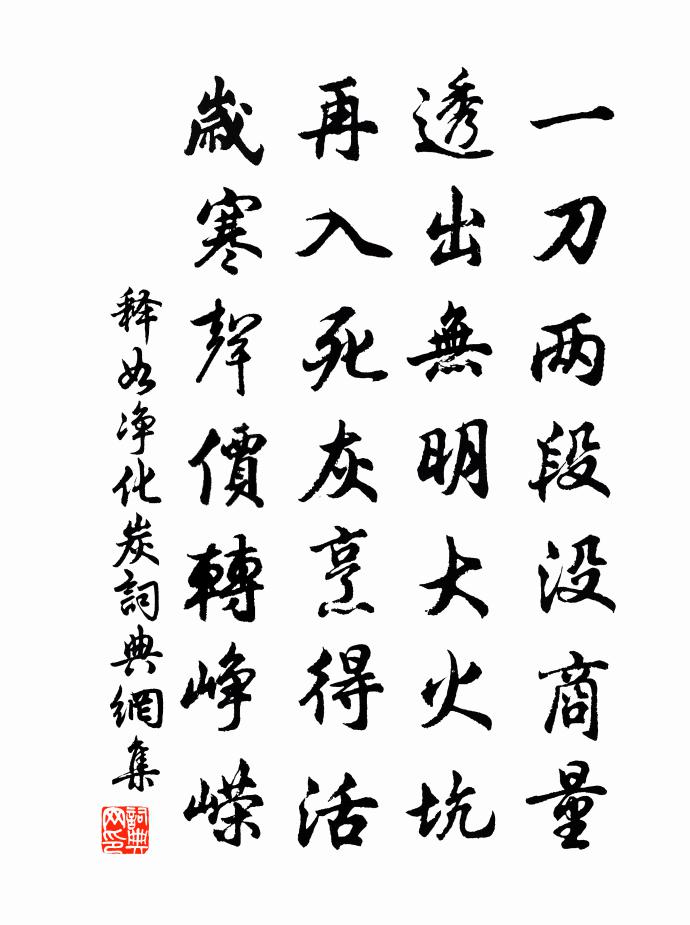 一刀两段没商量
透出無明大火坑
再入死灰烹得活
歲寒聲價轉峥嵘
释如净化炭詞典網集
詞典
网印